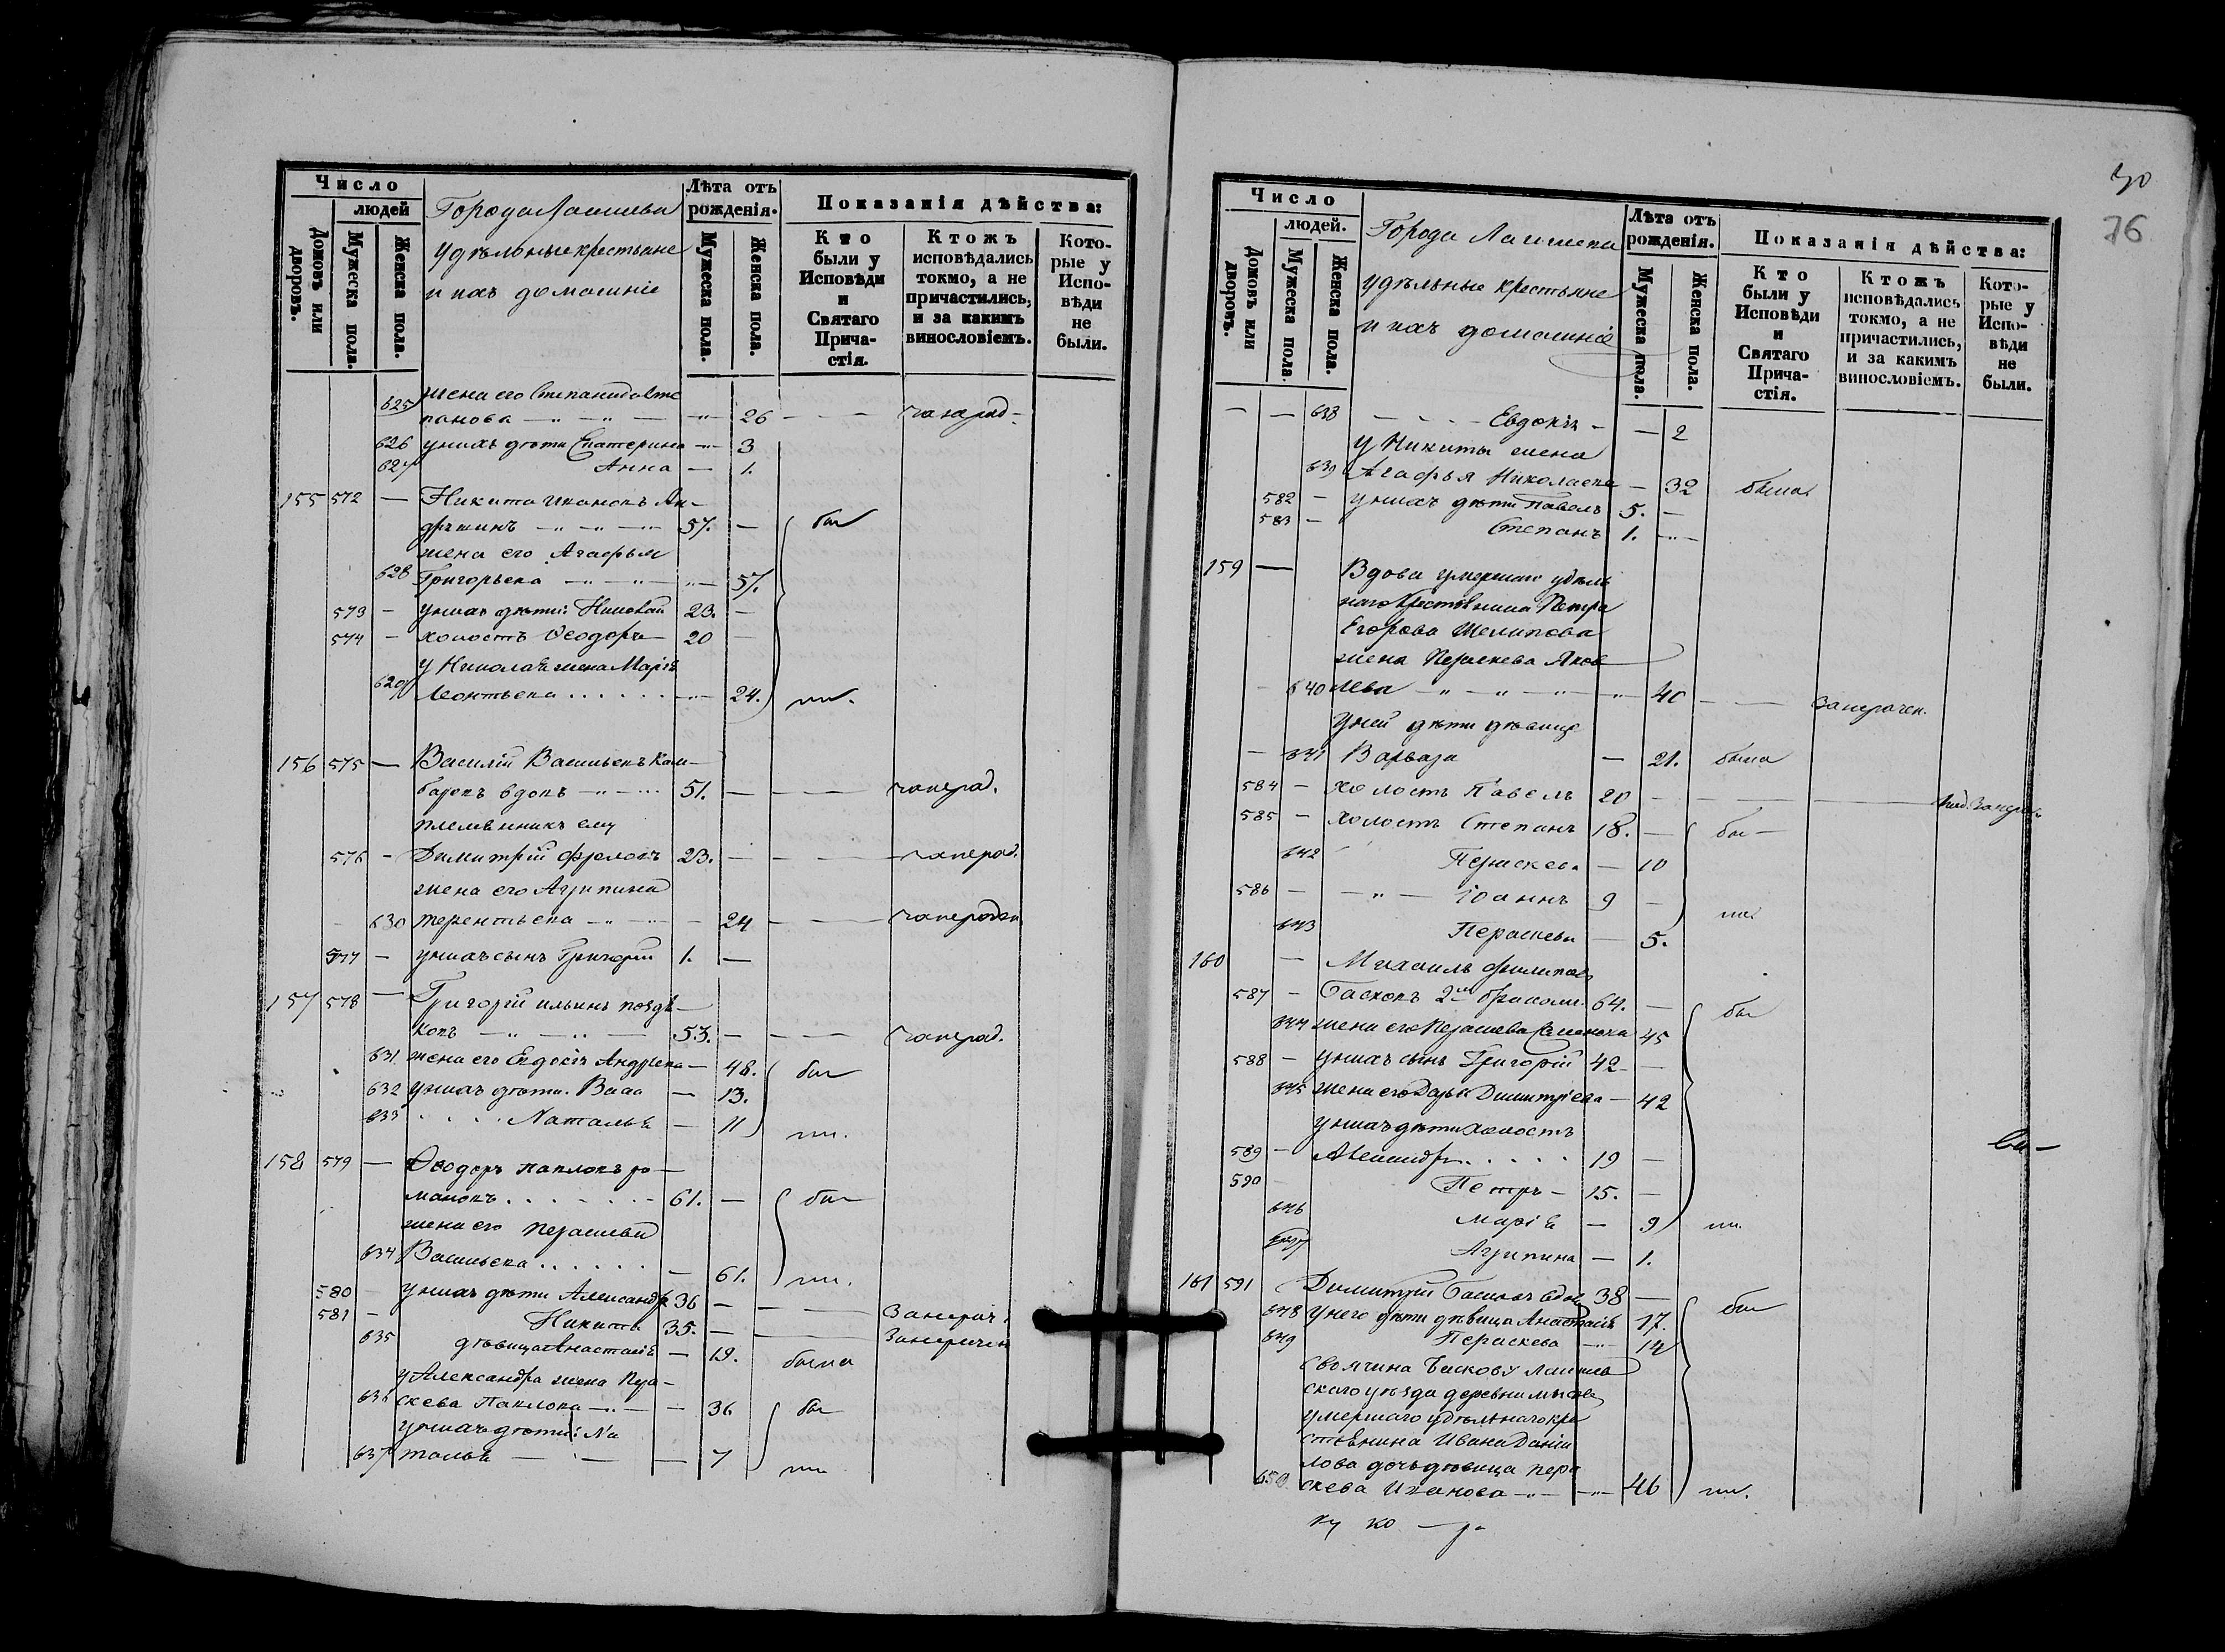 Число
людей
Домовъ или дворовъ.
Мужеска пола.
Женска пола.
Города Лаишева
Удѣльные крестьяне
и ихъ домашніе
Лѣта отъ рожденія.
Мужеска пола.
Женска пола.
Показанія дѣйства:
Кто были у Исповѣди и Святаго Причастія.
Ктожъ исповѣдались токмо, а не причастились, и за какимъ винословіемъ.
Которые у Исповѣди не были.
625 жена его Степанида Сте
панова — 26
626 у нихъ дѣти Екатерина — 3
627 Анна — 1.
155 572 — Никита Ивановъ Ан-
57. —
жена его Агафья
628 Григорьева — 57.
573 — у нихъ дѣти: Николай 23. —
574 — холостъ Ѳеодоръ — 20 —
у Николая жена Марія
629 Леонтьева . . . . . — 24.
156 575 — Василій Васильевъ Кам-
баровъ вдовъ — 51. —
племянникъ ему
576 — Димитрій Фроловъ 23. —
жена его Агрипина
630 Терентьева — 24
577 — у нихъ сынъ Григорій 1. —
157 578 — Григорій Ильинъ Поздѣ-
ковъ — 53. —
631 жена его Евдокія Андреева — 48.
632 у нихъ дѣти. — 13.
633 . . . . Наталья — 11
158 579 — Ѳеодоръ Павловъ Ро-
мановъ . . . . . . — 61. —
жена его Параскева
634 Васильева . . . . . . — 61.
580 — у нихъ дѣти Александръ 36 —
581 — Никита 35. —
635 дѣвица Анастасія — 19. была
у Александра жена Пра-
636 скева Павлова — 36
у нихъ дѣти: На
637 талья — 7
70
76
Число
людей.
Домовъ или дворовъ.
Мужеска пола.
Женска пола.
Города Лаишева
удѣльные крестьяне
и ихъ домашніе
Лѣта отъ рожденія.
Мужеска пола.
Женска пола.
Показанія дѣйства:
Кто были у Исповѣди и Святаго Причастія.
Ктожъ исповѣдались токмо, а не причастились, и за какимъ винословіемъ.
Которые у Исповѣди не были.
— — 638 — Евдокія — — 2
У Никиты жена
639 Агафья Николаева — 32 была
582 — у нихъ дѣти Павелъ 5. —
583 — Степанъ 1. —
159 — Вдова умершаго удѣль
наго крестьянина Петра
Егорова
жена Параскева Яков
640 лева — 40
У ней дѣти дѣвица
— 641 Варвара — 21. была
584 — холостъ Павелъ 20 —
585 — холостъ Степанъ 18. —
642 Параскева — 10
586 — Іоаннъ 9 —
643 Параскева — 5.
160 — Михаилъ Филиповъ
587 — Басковъ 64. —
644 жена его Параскева Семенова 45
588 — у нихъ сынъ Григорій 42 —
645 жена его Дарья Димитріева — 42
у нихъ дѣти холостъ
589 — Александръ . . . . . 19 —
590 — Петръ — 15. —
646 Марія — 9
647 Агрипина — 1.
161 591 Димитрій Басковъ вдов 38 —
648 у него дѣти дѣвица Анастасія 17.
649 Параскева — 14
Лаишев
скаго уѣзда деревни
умершаго удѣльнаго кре
стьянина Ивана Дани
лова дочь дѣвица Пара
650 скева Иванова — 46